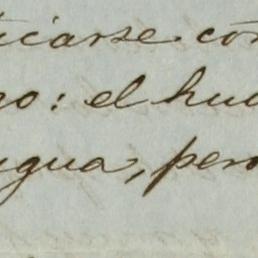 ticarse con
go: el hu
gua, pero